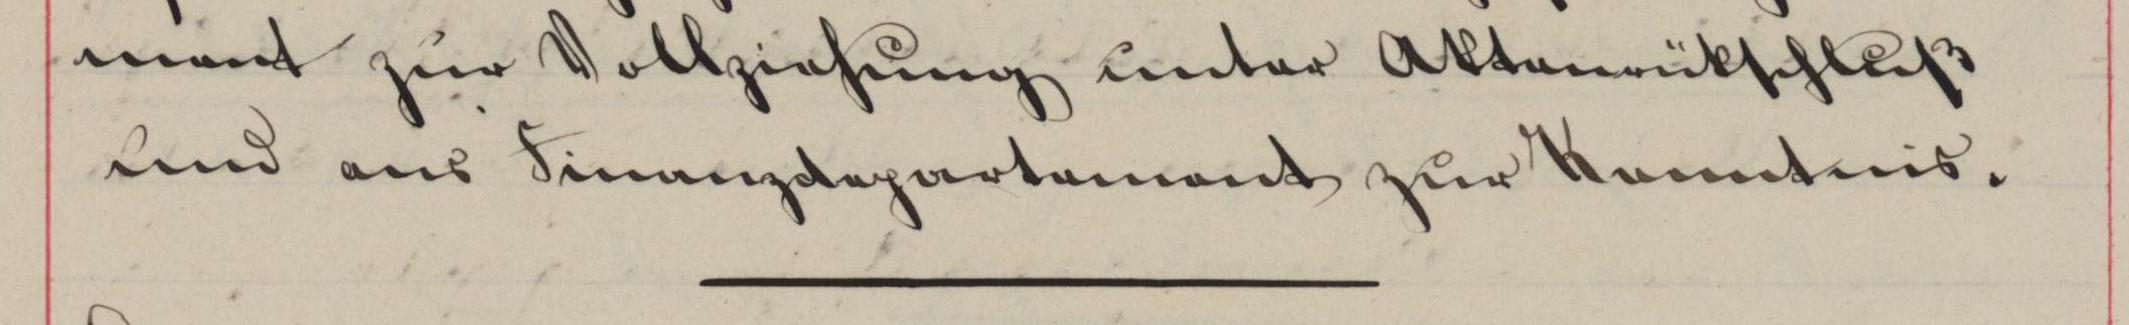 ment zur Vollziehung unter Aktenrükschluß
und ans Finanzdepartement zur Kenntnis.